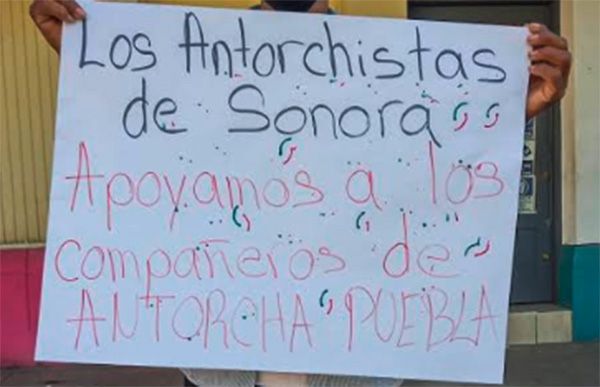 Los Antorchistas
de Sonora
Apoyamos a los
compañeros de
ANTORCHA PUEBLA